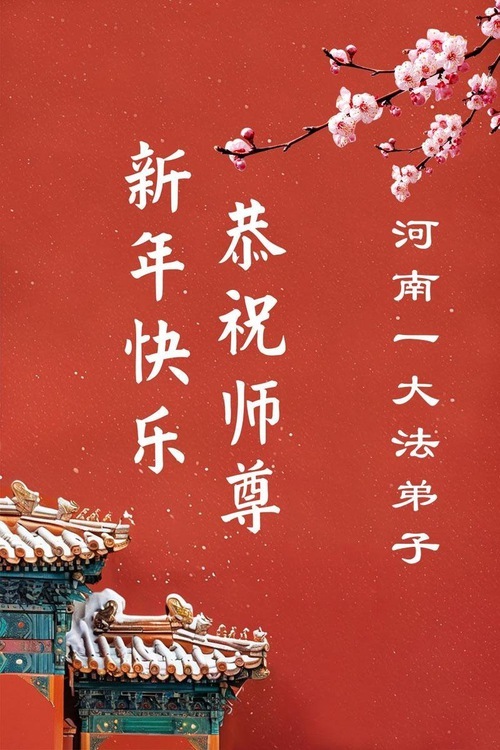 恭祝师尊
新年快乐
河南一大法弟子